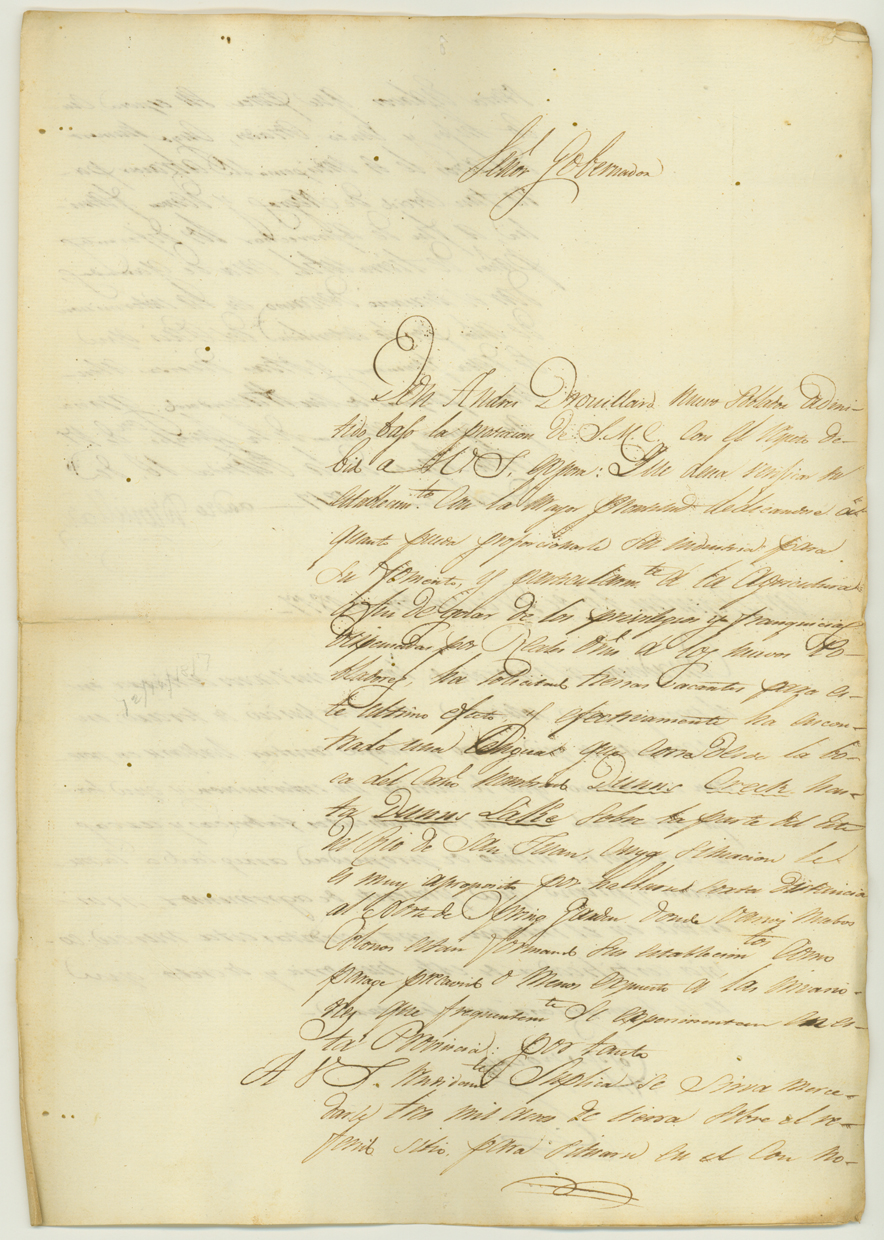 Señor Gobernador
Don Andres Drouillard nuevo Poblador admi-
tido bajo la proteccion de S.M.C. con el respeto de-
bido a V.S. expone: Que desea verificar su
establecim.to con la mayor prontitud dedicandose a
quanto pueda proporcionarle su industria para
su fomento, y particularm.te a la agricultura
a fin de gozar de los privilegios y franquicias
dispensados por Reales ord.s a los nuevos Po-
bladores, ha solicitado tierras vacantes para es-
te ultimo efecto, y efectivamente ha encon-
trado una que corre desde la bo-
ca del nombrado Dunns Creek has-
ta Dunns Lake sobre la parte del Este
del Rio de San Juan, cuya situacion le
es muy aproposito por hallarse corta distancia
al Norte de Spring Garden donde varios
Colonos estan formando sus establecim.tos como
parage menos expuesto a las invacio-
nes que frequentem.te se experimentan en es-
ta Provincia: por tanto
A V.S. rendidam.te Suplica se sirva merce-
darle tres mil acres de tierra sobre el re-
ferido sitio, para situarse en el con no-